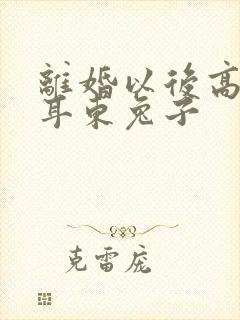 離婚以後高
耳朵兔子
克雷庞